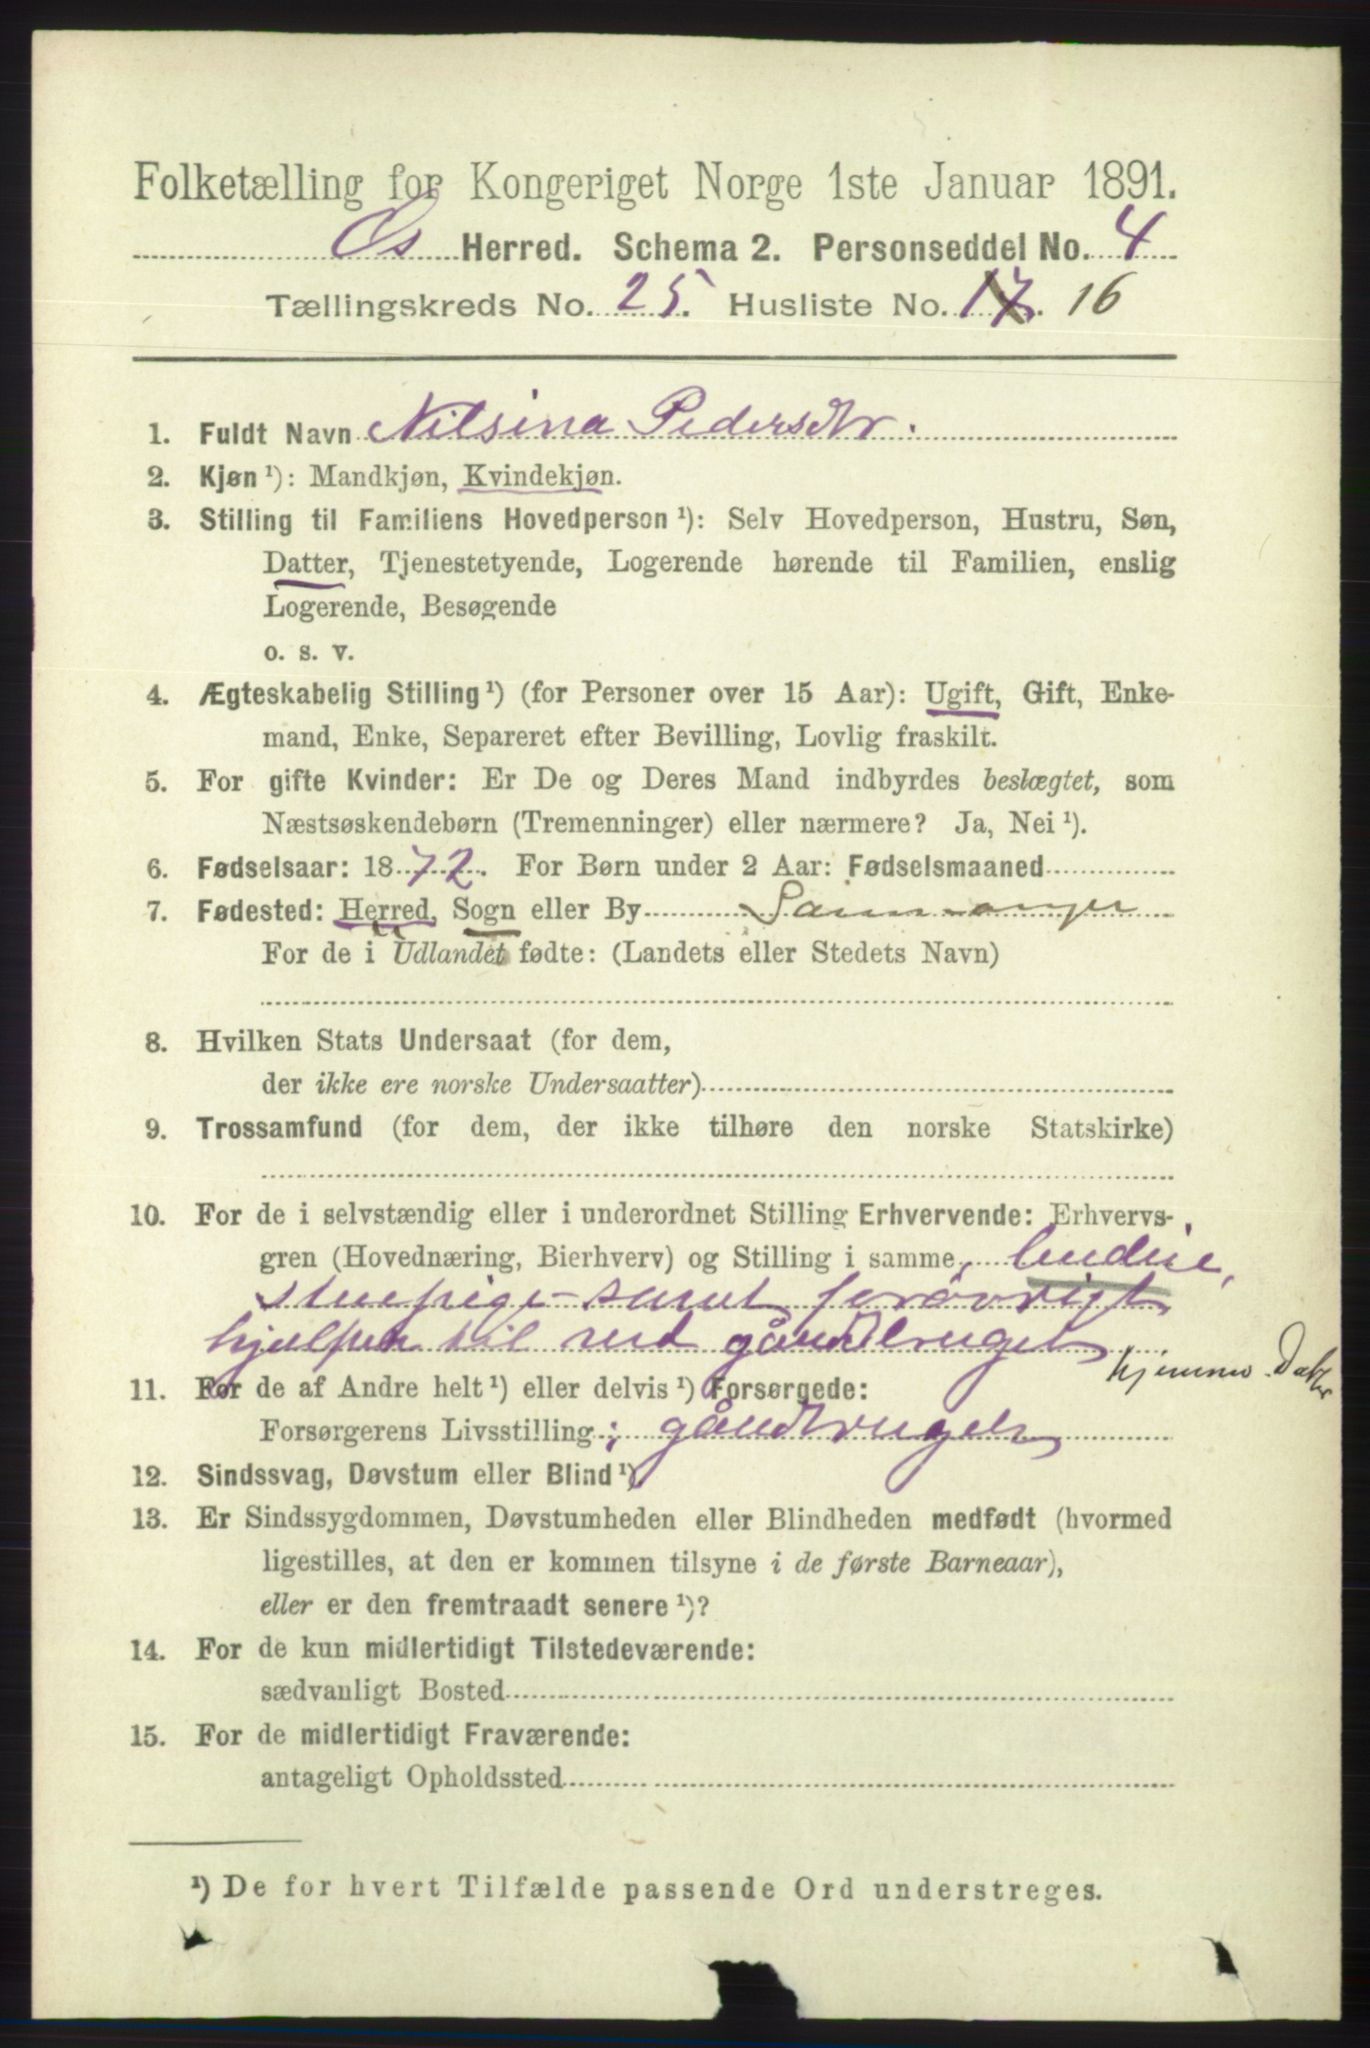 Folketælling for Kongeriget Norge 1ste Januar 1891.
Os Herred. Schema 2. Personseddel No. 4
Tællingskreds No. 25. Husliste No. 17. 16
1. Fuldt Navn Nilsina Pedersdtr.
2. Kjøn ¹): Mandkjøn, Kvindekjøn.
3. Stilling til Familiens Hovedperson ¹): Selv Hovedperson, Hustru, Søn,
Datter, Tjenestetyende, Logerende hørende til Familien, enslig
Logerende, Besøgende
o. s. v.
4. Ægteskabelig Stilling ¹) (for Personer over 15 Aar): Ugift, Gift, Enke-
mand, Enke, Separeret efter Bevilling, Lovlig fraskilt.
5. For gifte Kvinder: Er De og Deres Mand indbyrdes beslægtet, som
Næstsøskendebørn (Tremenninger) eller nærmere? Ja, Nei ¹).
6. Fødselsaar: 1872. For Børn under 2 Aar: Fødselsmaaned
7. Fødested: Herred, Sogn eller By Samnanger
For de i Udlandet fødte: (Landets eller Stedets Navn)
8. Hvilken Stats Undersaat (for dem,
der ikke ere norske Undersaatter)
9. Trossamfund (for dem, der ikke tilhøre den norske Statskirke)
10. For de i selvstændig eller i underordnet Stilling Erhvervende: Erhvervs-
gren (Hovednæring, Bierhverv) og Stilling i samme, budeie,
stuepige samt forøvrigt
hjælper til ved gårdbruget
hjemmev. Datter
11. For de af Andre helt ¹) eller delvis ¹) Forsørgede:
Forsørgerens Livsstilling:
12. Sindssvag, Døvstum eller Blind ¹).
13. Er Sindssygdommen, Døvstumheden eller Blindheden medfødt (hvormed
ligestilles, at den er kommen tilsyne i de første Barneaar),
eller er den fremtraadt senere ¹)?
14. For de kun midlertidigt Tilstedeværende:
sædvanligt Bosted
15. For de midlertidigt Fraværende:
antageligt Opholdssted
¹) De for hvert Tilfælde passende Ord understreges.